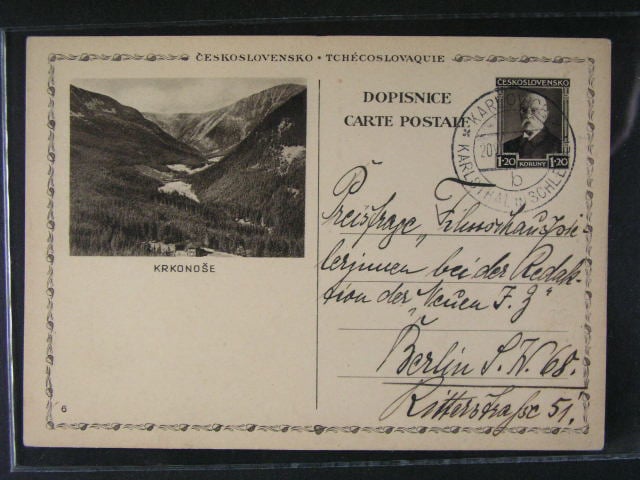 ČESKOSLOVENSKO • TCHÉCOSLOVAQUIE
DOPISNICE
CARTE POSTALE
ČESKOSLOVENSKO
KORUNY
1·20 1·20
KARLSTHAL IN SCHLES
20
b
KRKONOŠE
Preisfrage „Filmschauspie-
lerinnen bei der Redak-
tion der „Neuen I. Z“
Berlin S.W. 68.
Ritterstraße 51.
6